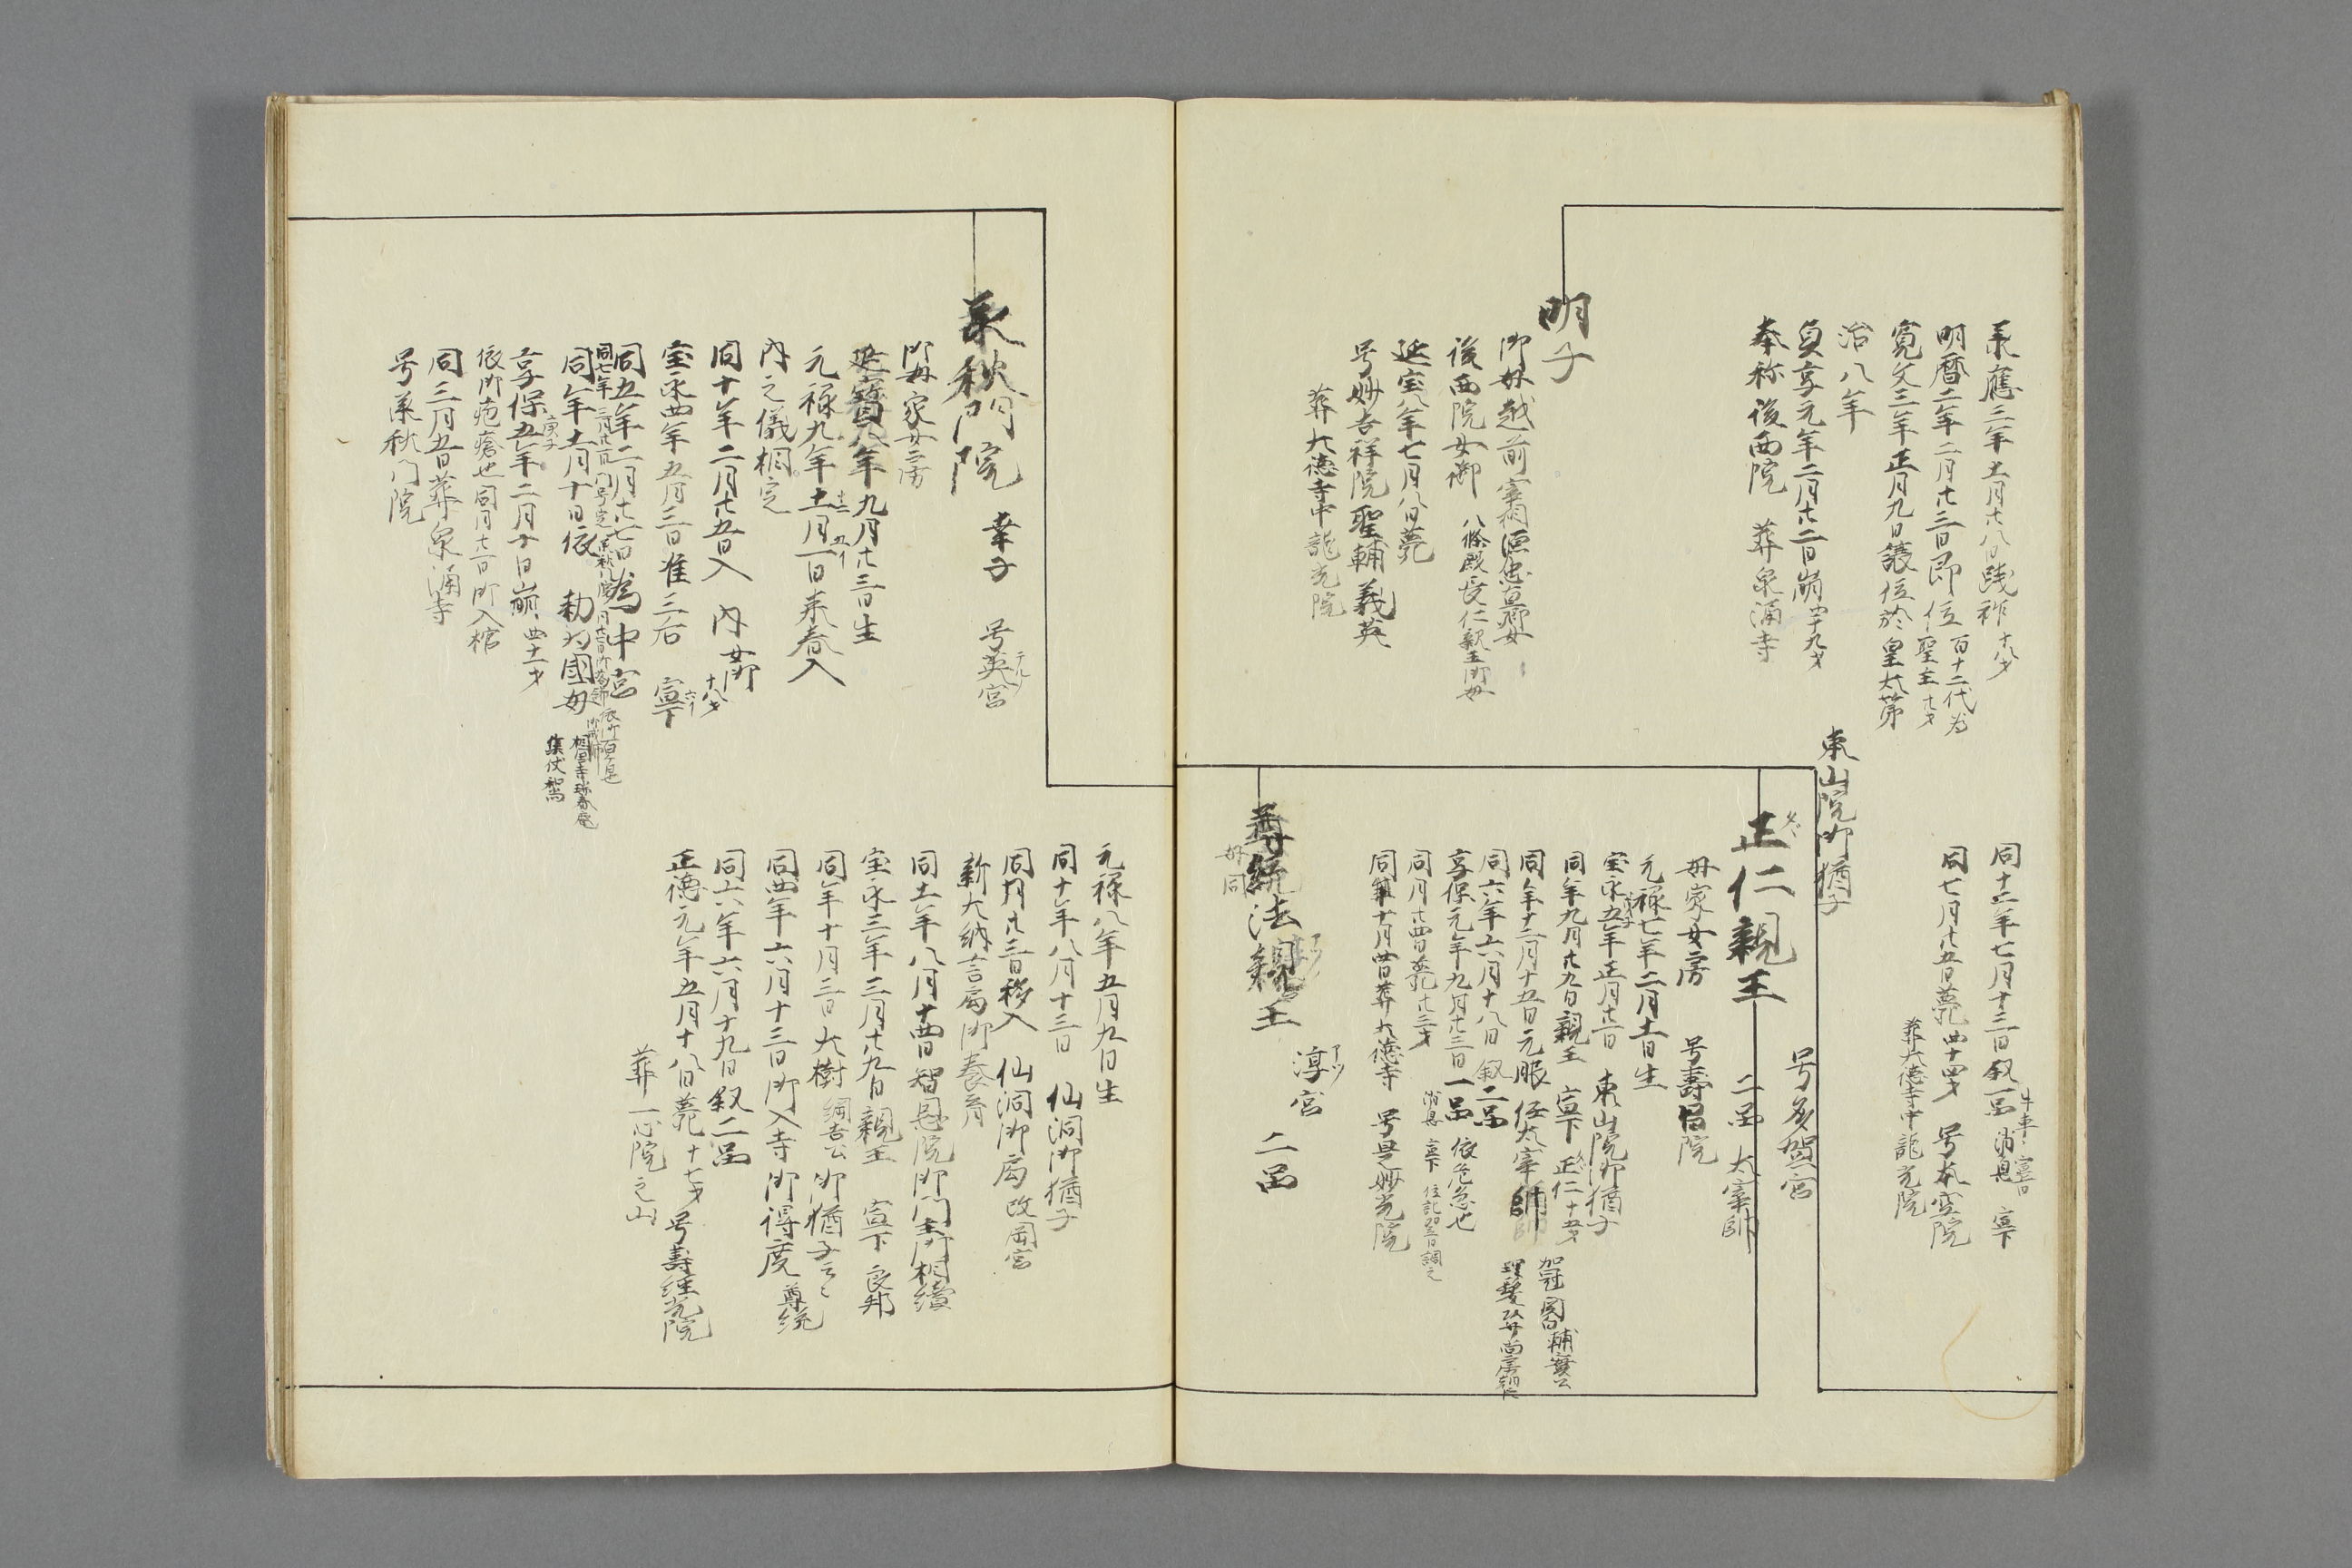 承應三年十一月廿八日践祚 十八才
明暦二年正月廿三日即位 百十二代為
聖主 廿才
寛文三年正月九日譲位於 皇太弟
治八年
貞享元年二月廿二日崩 四十九才
奉称後西院 葬泉涌寺
明子
御母越前宰相源忠直卿女
後西院女御 八條殿長仁親王御母
延宝八年七月八日薨
号妙吉祥院聖輔義英
葬大徳寺中龍光院
同七月廿五日薨四十四才 号本空院
葬大徳寺中龍光院
東山院御猶子
正仁親王 二品 太宰帥
号多賀宮
母家女房 号壽昌院
元禄七年二月十一日生
宝永五年正月廿一日 東山院御猶子
同年九月廿九日親王 宣下 正仁 十五才
同年十二月十五日元服 任太宰帥
同六年六月十八日 叙二品
享保元年九月廿三日一品 依危急也
同月廿四日薨 廿三才
尊統法親王 淳宮 二品
アツノ
母同
承秋門院 幸子 号英宮
御母家女房
延寳八年九月廿三日生
元禄九年十一月一日来春入
内之儀相定
同十年二月廿五日入 内 女御
十八才
宝永四年五月三日准三后 宣下
同五年二月廿七日為中宮
同年十一月十日依 勅為國母
庚子
享保五年二月十日崩 四十一才
依御疱瘡也同月廿一日御入棺
同三月五日葬泉涌寺
号承秋門院
元禄八年五月九日生
同十年八月十三日 仙洞御猶子
同月廿三日移入 仙洞御局 改岡宮
新大納言局御養育
同十一年八月十四日智恩院御門主御相續
宝永三年三月廿九日親王 宣下 良邦
同年十月三日大樹 綱吉公 御猶子云々
同四年六月十三日御入寺 御得度 尊統
同六年六月十九日叙二品
正徳元年五月十八日薨 十七才 号壽経光院
葬一心院之山